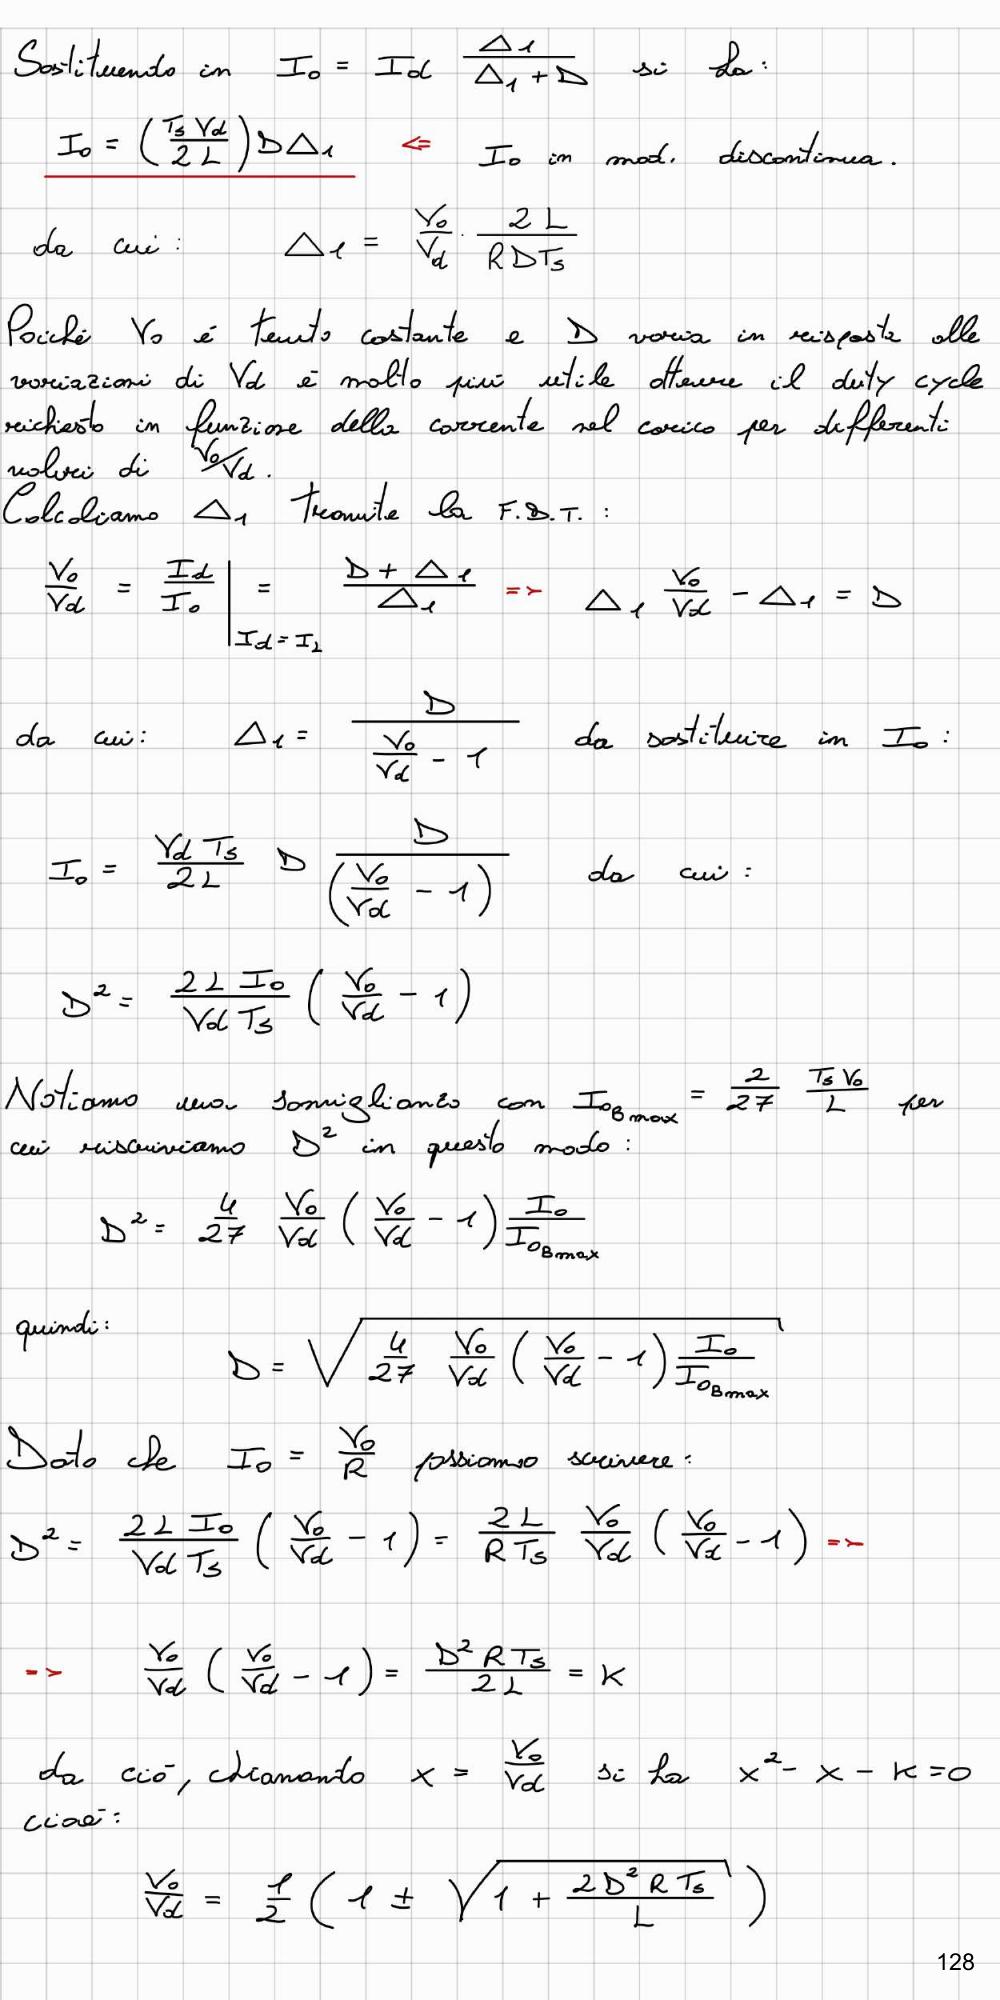 Sostituendo in I₀ = Id Δ₁/(Δ₁ + D) si ha:
I₀ = (Ts Vd / 2L) D Δ₁ <= I₀ in mod. discontinua.
da cui: Δ₁ = V₀/Vd · 2L/(R D Ts)
Poiché V₀ é tenuto costante e D varia in risposta alle
variazioni di Vd é molto piú utile ottenere il duty cycle
richiesto in funzione della corrente nel carico per differenti
valori di V₀/Vd.
Calcoliamo Δ₁ tramite la F.D.T. :
V₀/Vd = Id/I₀ |Id = IL = (D + Δ₁)/Δ₁ => Δ₁ V₀/Vd - Δ₁ = D
da cui: Δ₁ = D/(V₀/Vd - 1) da sostituire in I₀ :
I₀ = Vd Ts/2L D D/(V₀/Vd - 1) da cui :
D² = 2L I₀/(Vd Ts) (V₀/Vd - 1)
Notiamo una somiglianza con I₀Bmax = 2/27 Ts V₀/L per
cui riscriviamo D² in questo modo :
D² = 4/27 V₀/Vd (V₀/Vd - 1) I₀/I₀Bmax
quindi:
D = √(4/27 V₀/Vd (V₀/Vd - 1) I₀/I₀Bmax)
Dato che I₀ = V₀/R possiamo scrivere:
D² = 2L I₀/(Vd Ts) (V₀/Vd - 1) = 2L/(R Ts) V₀/Vd (V₀/Vd - 1) =>
=> V₀/Vd (V₀/Vd - 1) = D² R Ts/2L = K
da ció, chiamando x = V₀/Vd si ha x² - x - K = 0
cioé:
V₀/Vd = 1/2 (1 ± √(1 + 2D² R Ts/L))
128